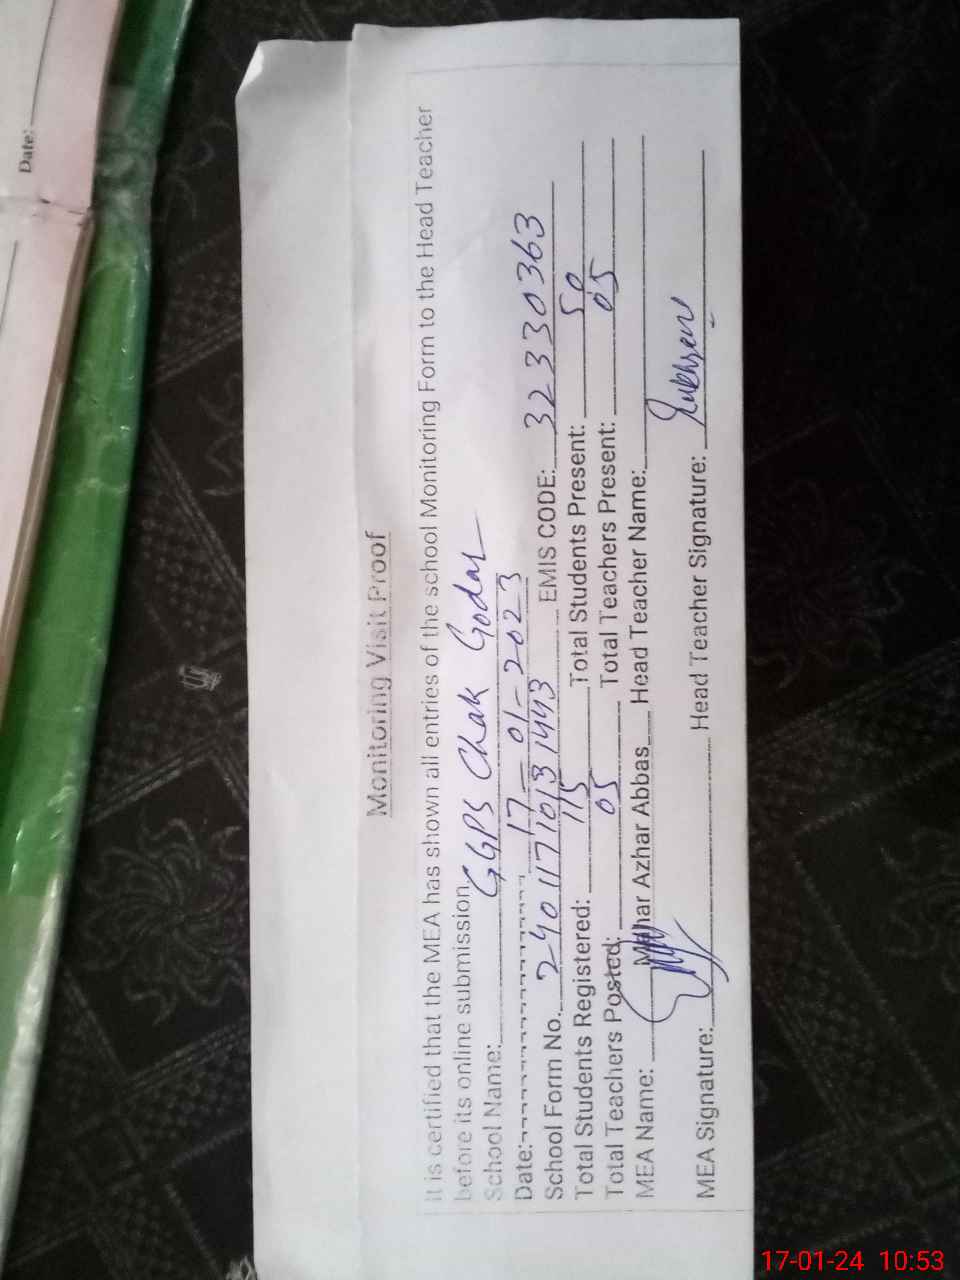 Date:
Monitoring Visit Proof
It is certified that the MEA has shown all entries of the school Monitoring Form to the Head Teacher
before its online submission.
School Name: GGPS Chak Godar
Date: 17-01-2023
School Form No. 240117 1013 1443 EMIS CODE: 32330363
Total Students Registered: 115 Total Students Present: 50
Total Teachers Posted: 05 Total Teachers Present: 05
MEA Name: Mahar Azhar Abbas Head Teacher Name:
MEA Signature: Head Teacher Signature:
17-01-24 10:53